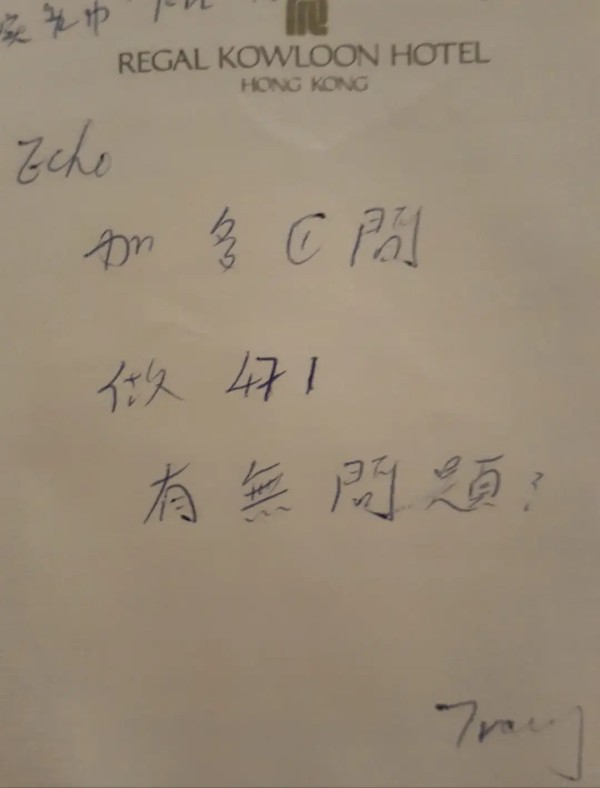 REGAL KOWLOON HOTEL
HONG KONG
Echo
加多①問
做 471
有無問題?
Tracy